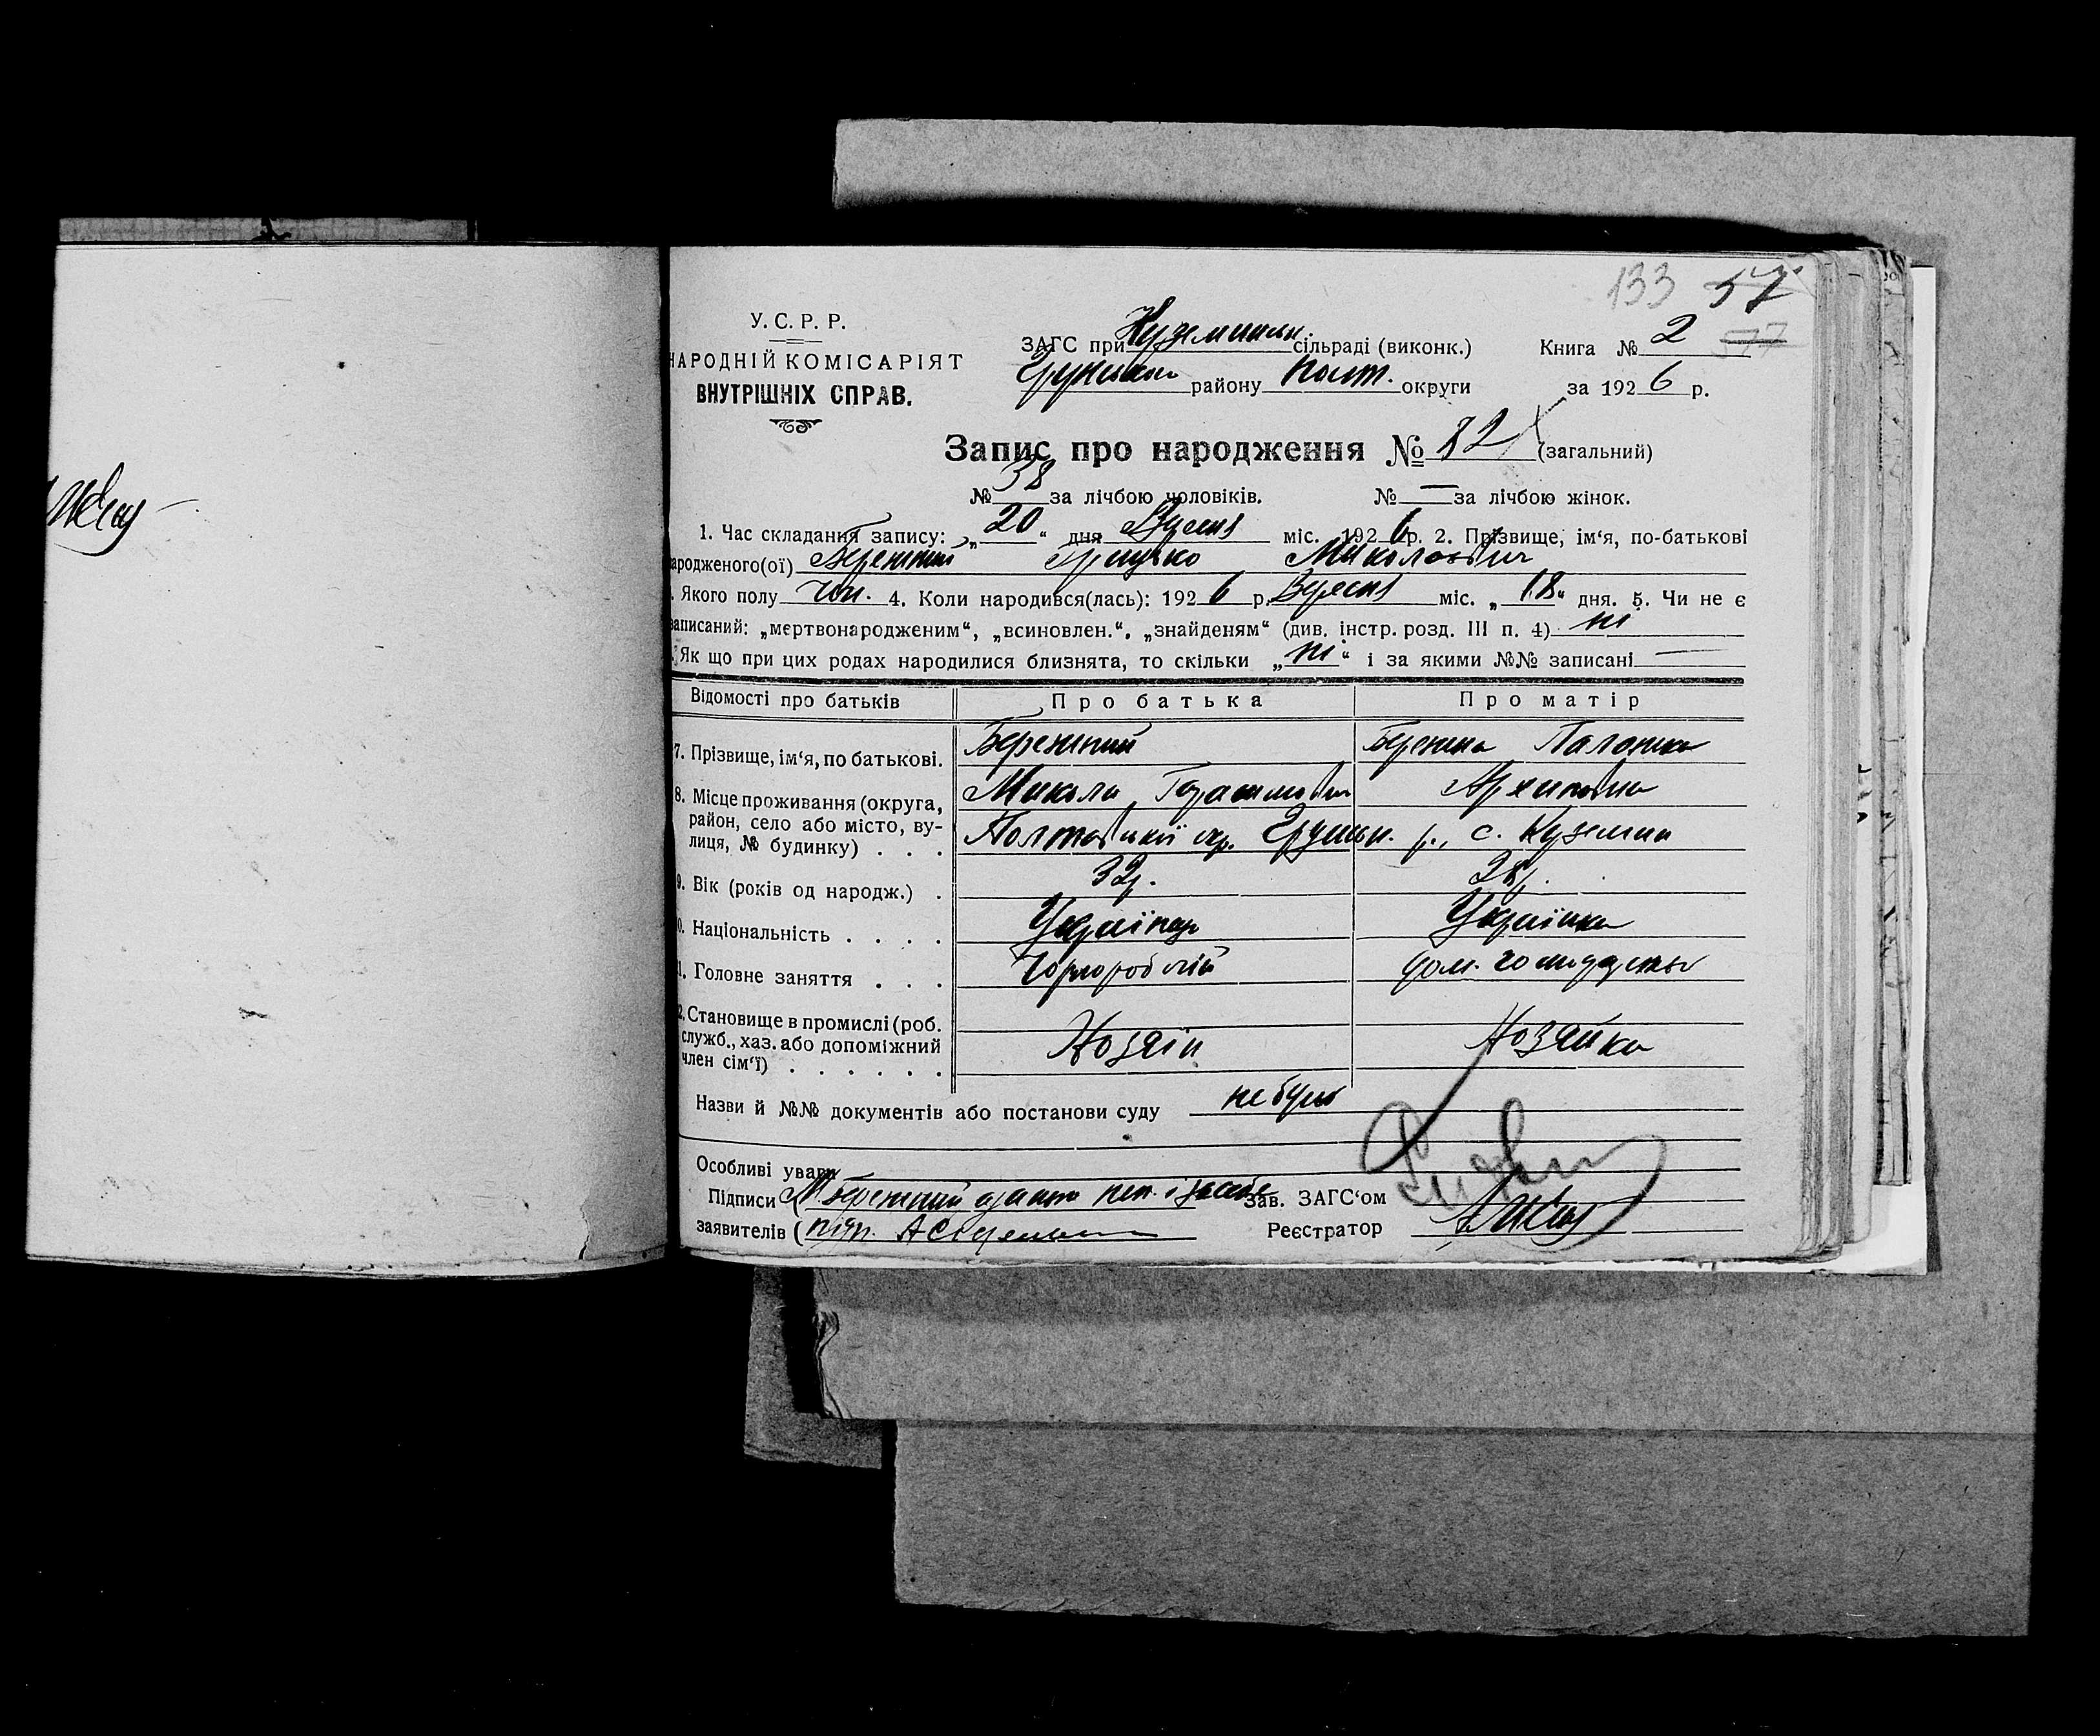 133 57
577
У. С. Р. Р.
НАРОДНІЙ КОМІСАРІЯТ
ВНУТРІШНІХ СПРАВ.
ЗАГС при Куземинськ сільраді (виконк.)
Грунськ району Полт. округи
Книга № 2
за 1926 р.
Запис про народження № 82 (загальний)
№ 38 за лічбою чоловіків. № — за лічбою жінок.
1. Час складання запису: „20“ дня Вересня міс. 1926 р. 2. Прізвище, ім‘я, по-батькові
ародженого(ої) Бережний Грицько Миколаєвич
. Якого полу чол. 4. Коли народився(лась): 1926 р. Вересня міс. „18“ дня. 5. Чи не є
записаний: „мертвонародженим“, „всиновлен.“, „знайденям“ (див. інстр. розд. III п. 4) ні
Як що при цих родах народилися близнята, то скільки „ні“ і за якими №№ записані —
Відомості про батьків Про батька Про матір
7. Прізвище, ім‘я, по батькові. Бережний Бережна Палажка
Микола Гарасимович Архиповна
8. Місце проживання (округа, район, село або місто, вулиця, № будинку) . . . Полтавської окр. Грунськ. р., с. Куземин
9. Вік (років од народж.) . 32р. 28р.
0. Національність . . . . Українець Українка
1. Головне заняття . . . Чорноробочий дом. господарство
2. Становище в промислі (роб. служб., хаз. або допоміжний член сім‘ї) . . . . . . Хозяїн Хозяйка
Назви й №№ документів або постанови суду не було
Особливі уваги
Підписи ( М Бережний за себе Зав. ЗАГС‘ом
заявителів ( підп. Реєстратор